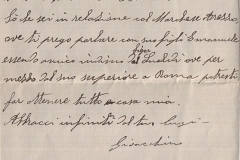 Se sei in relazione col Marchese Arezzo,
ve ti prego parlare col suo figlio Emanuele
essendo amico intimo del ove per
mezzo del suo superiore a Roma potresti
far ottenere tutto a casa mia.
Abbracci infiniti dal tuo
Gioacchino